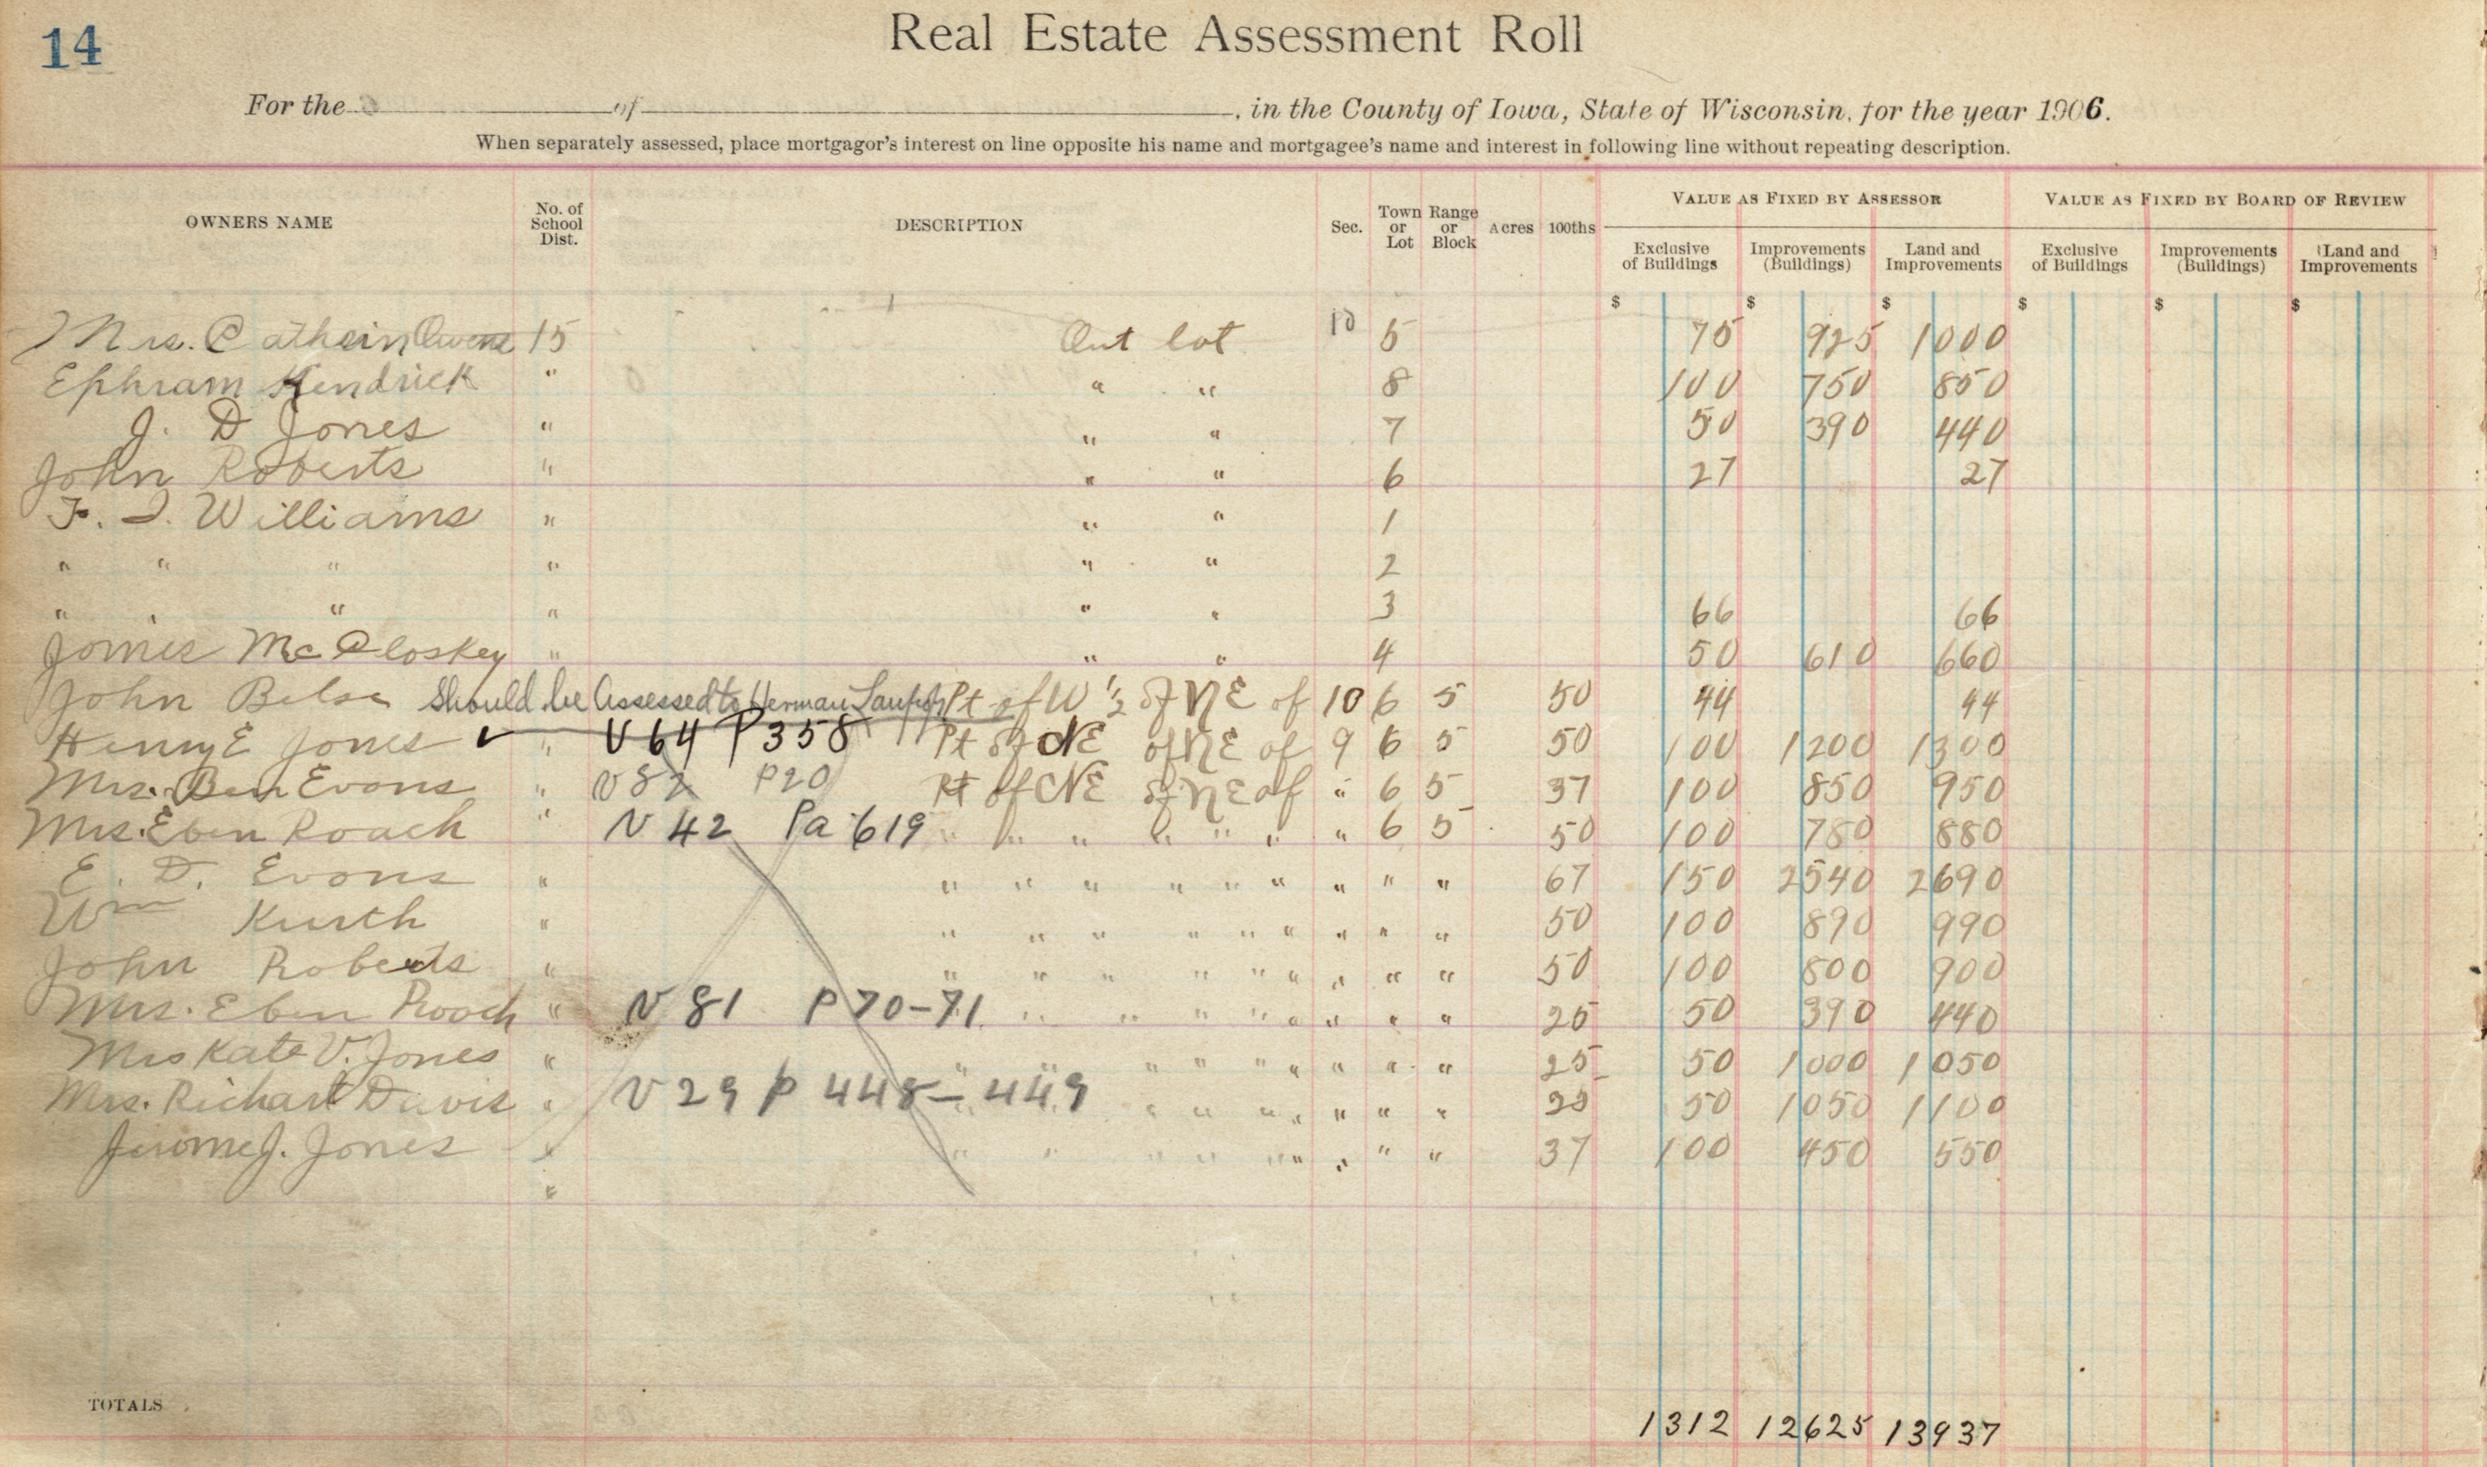 14
Real Estate Assessment Roll
For the of , in the County of Iowa, State of Wisconsin, for the year 1906.
When separately assessed, place mortgagor's interest on line opposite his name and mortgagee's name and interest in following line without repeating description.
OWNERS NAME No. of School Dist. DESCRIPTION Sec. Town or Lot Range or Block Acres 100ths VALUE AS FIXED BY ASSESSOR VALUE AS FIXED BY BOARD OF REVIEW
Exclusive of Buildings Improvements (Buildings) Land and Improvements Exclusive of Buildings Improvements (Buildings) Land and Improvements
$ $ $ $ $ $
Mrs. Cathein Owens 15 Out lot 10 5 75 925 1000
Ephram Kendrick " " " 8 100 750 850
J. D Jones " " " 7 50 390 440
John Roberts " " " 6 27 27
F. J. Williams " " " 1
" " " " " " 2
" " " " " " 3 66 66
James McCloskey " " " 4 50 610 660
John Belse Should be Assessed to Herman Pt of W 1/2 of NE of 10 6 5 50 44 44
Henry E Jones " V 64 P 358 Pt of NE of NE of 9 6 5 50 100 1200 1300
Mrs. Ben Evans " V 82 P20 Pt of NE of NE of " 6 5 37 100 850 950
Mrs. Eben Roach " V 42 Pa 619 " " " " " " " 6 5 50 100 780 880
E. D. Evans " " " " " " " " " " 67 150 2540 2690
Wm Kurth " " " " " " " " " " 50 100 890 990
John Roberts " " " " " " " " " " 50 100 800 900
Mrs. Eben Roach " V 81 P 70-71 " " " " " " " " " 25 50 390 440
Mrs Kate V. Jones " " " " " " " " " " 25 50 1000 1050
Mrs. Richard Davis " V 29 P 448-449 " " " " " " " " " 25 50 1050 1100
Jerome J. Jones " " " " " " " " " " 37 100 450 550
"
TOTALS 1312 12625 13937